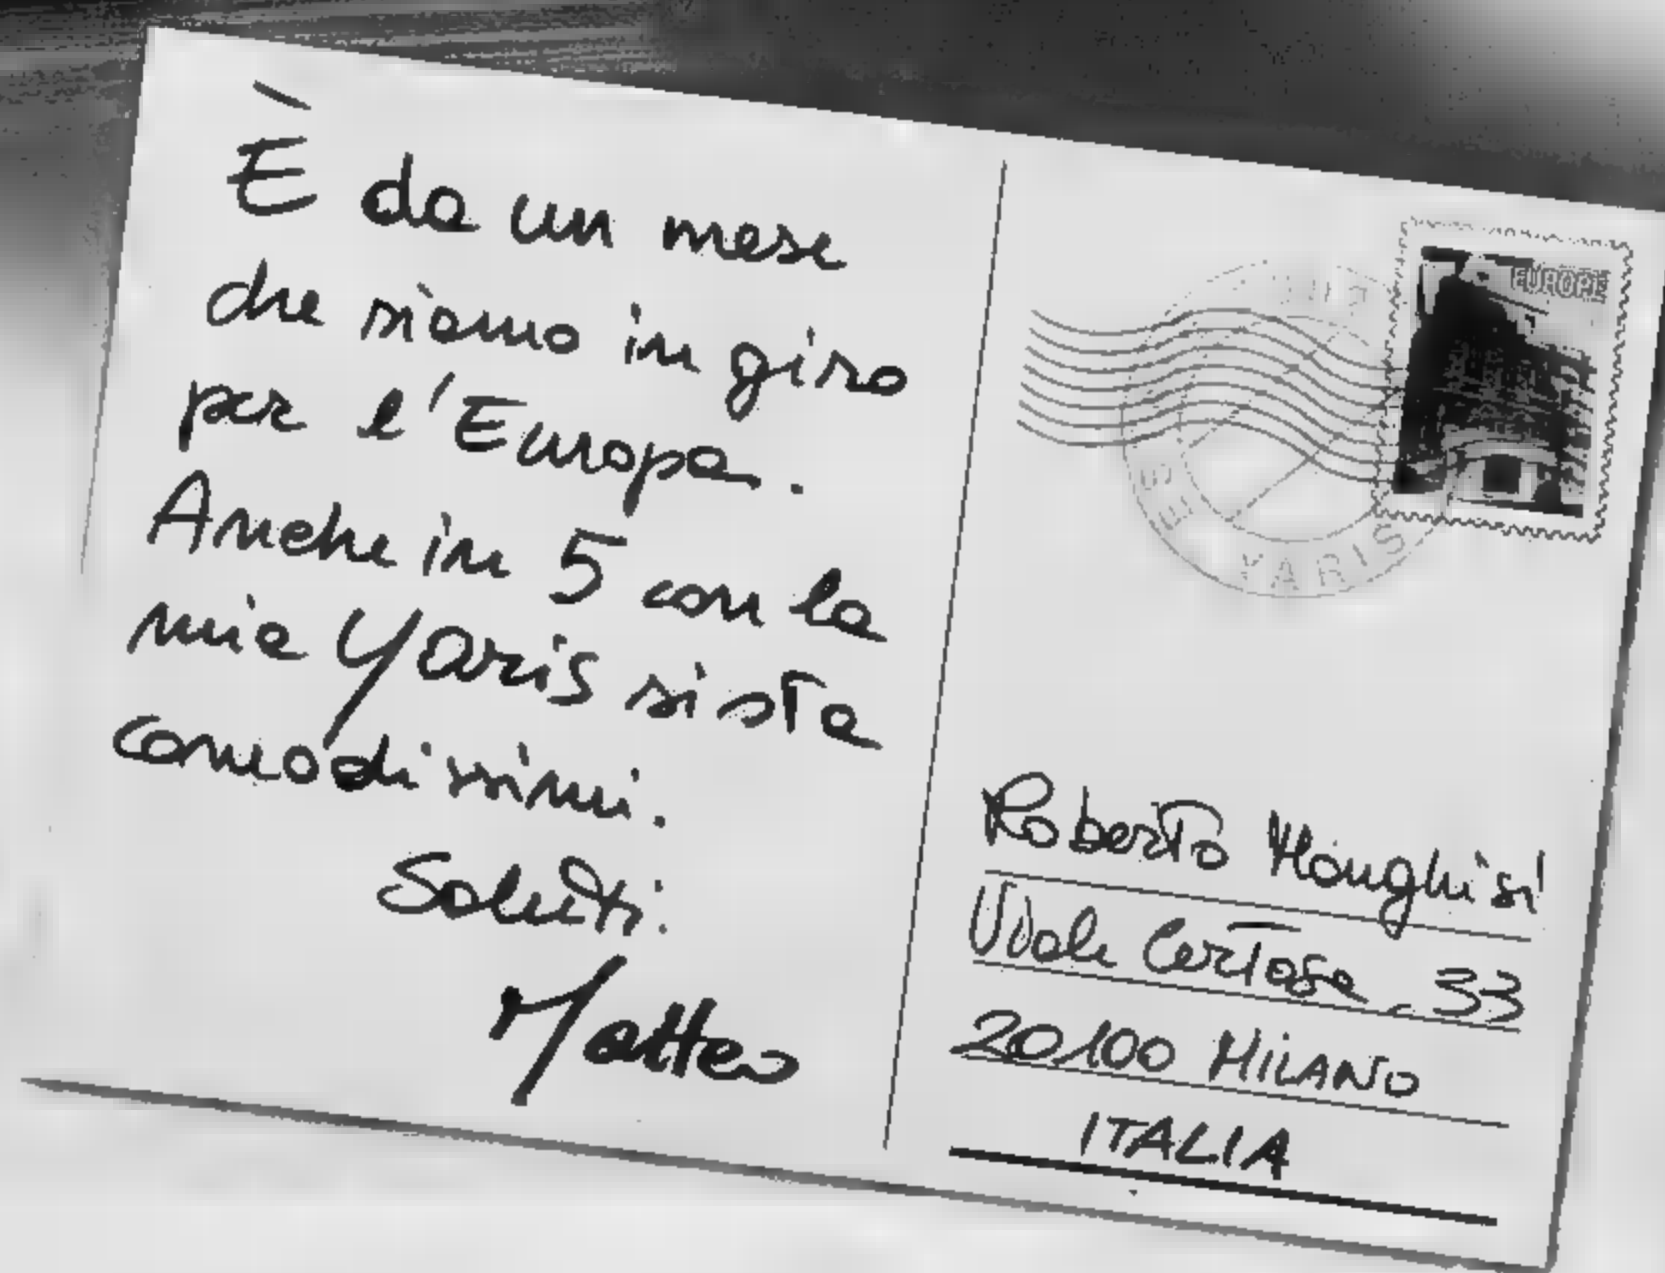 È da un mese
che siamo in giro
per l'Europa.
Anche in 5 con la
mia Yaris si sta
comodissimi.
Saluti.
Matteo
EUROPE
YARIS
Roberto Monghisi
Viale Certosa, 33
20100 MILANO
ITALIA